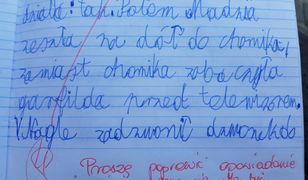 działa: tak. Potem Madzia
zeszła na dół do chomika,
zamiast chomika zobaczyła
garfilda przed telewizorem.
V. Nagle zadzwonił dzwonek do
Proszę poprawić opowiadanie